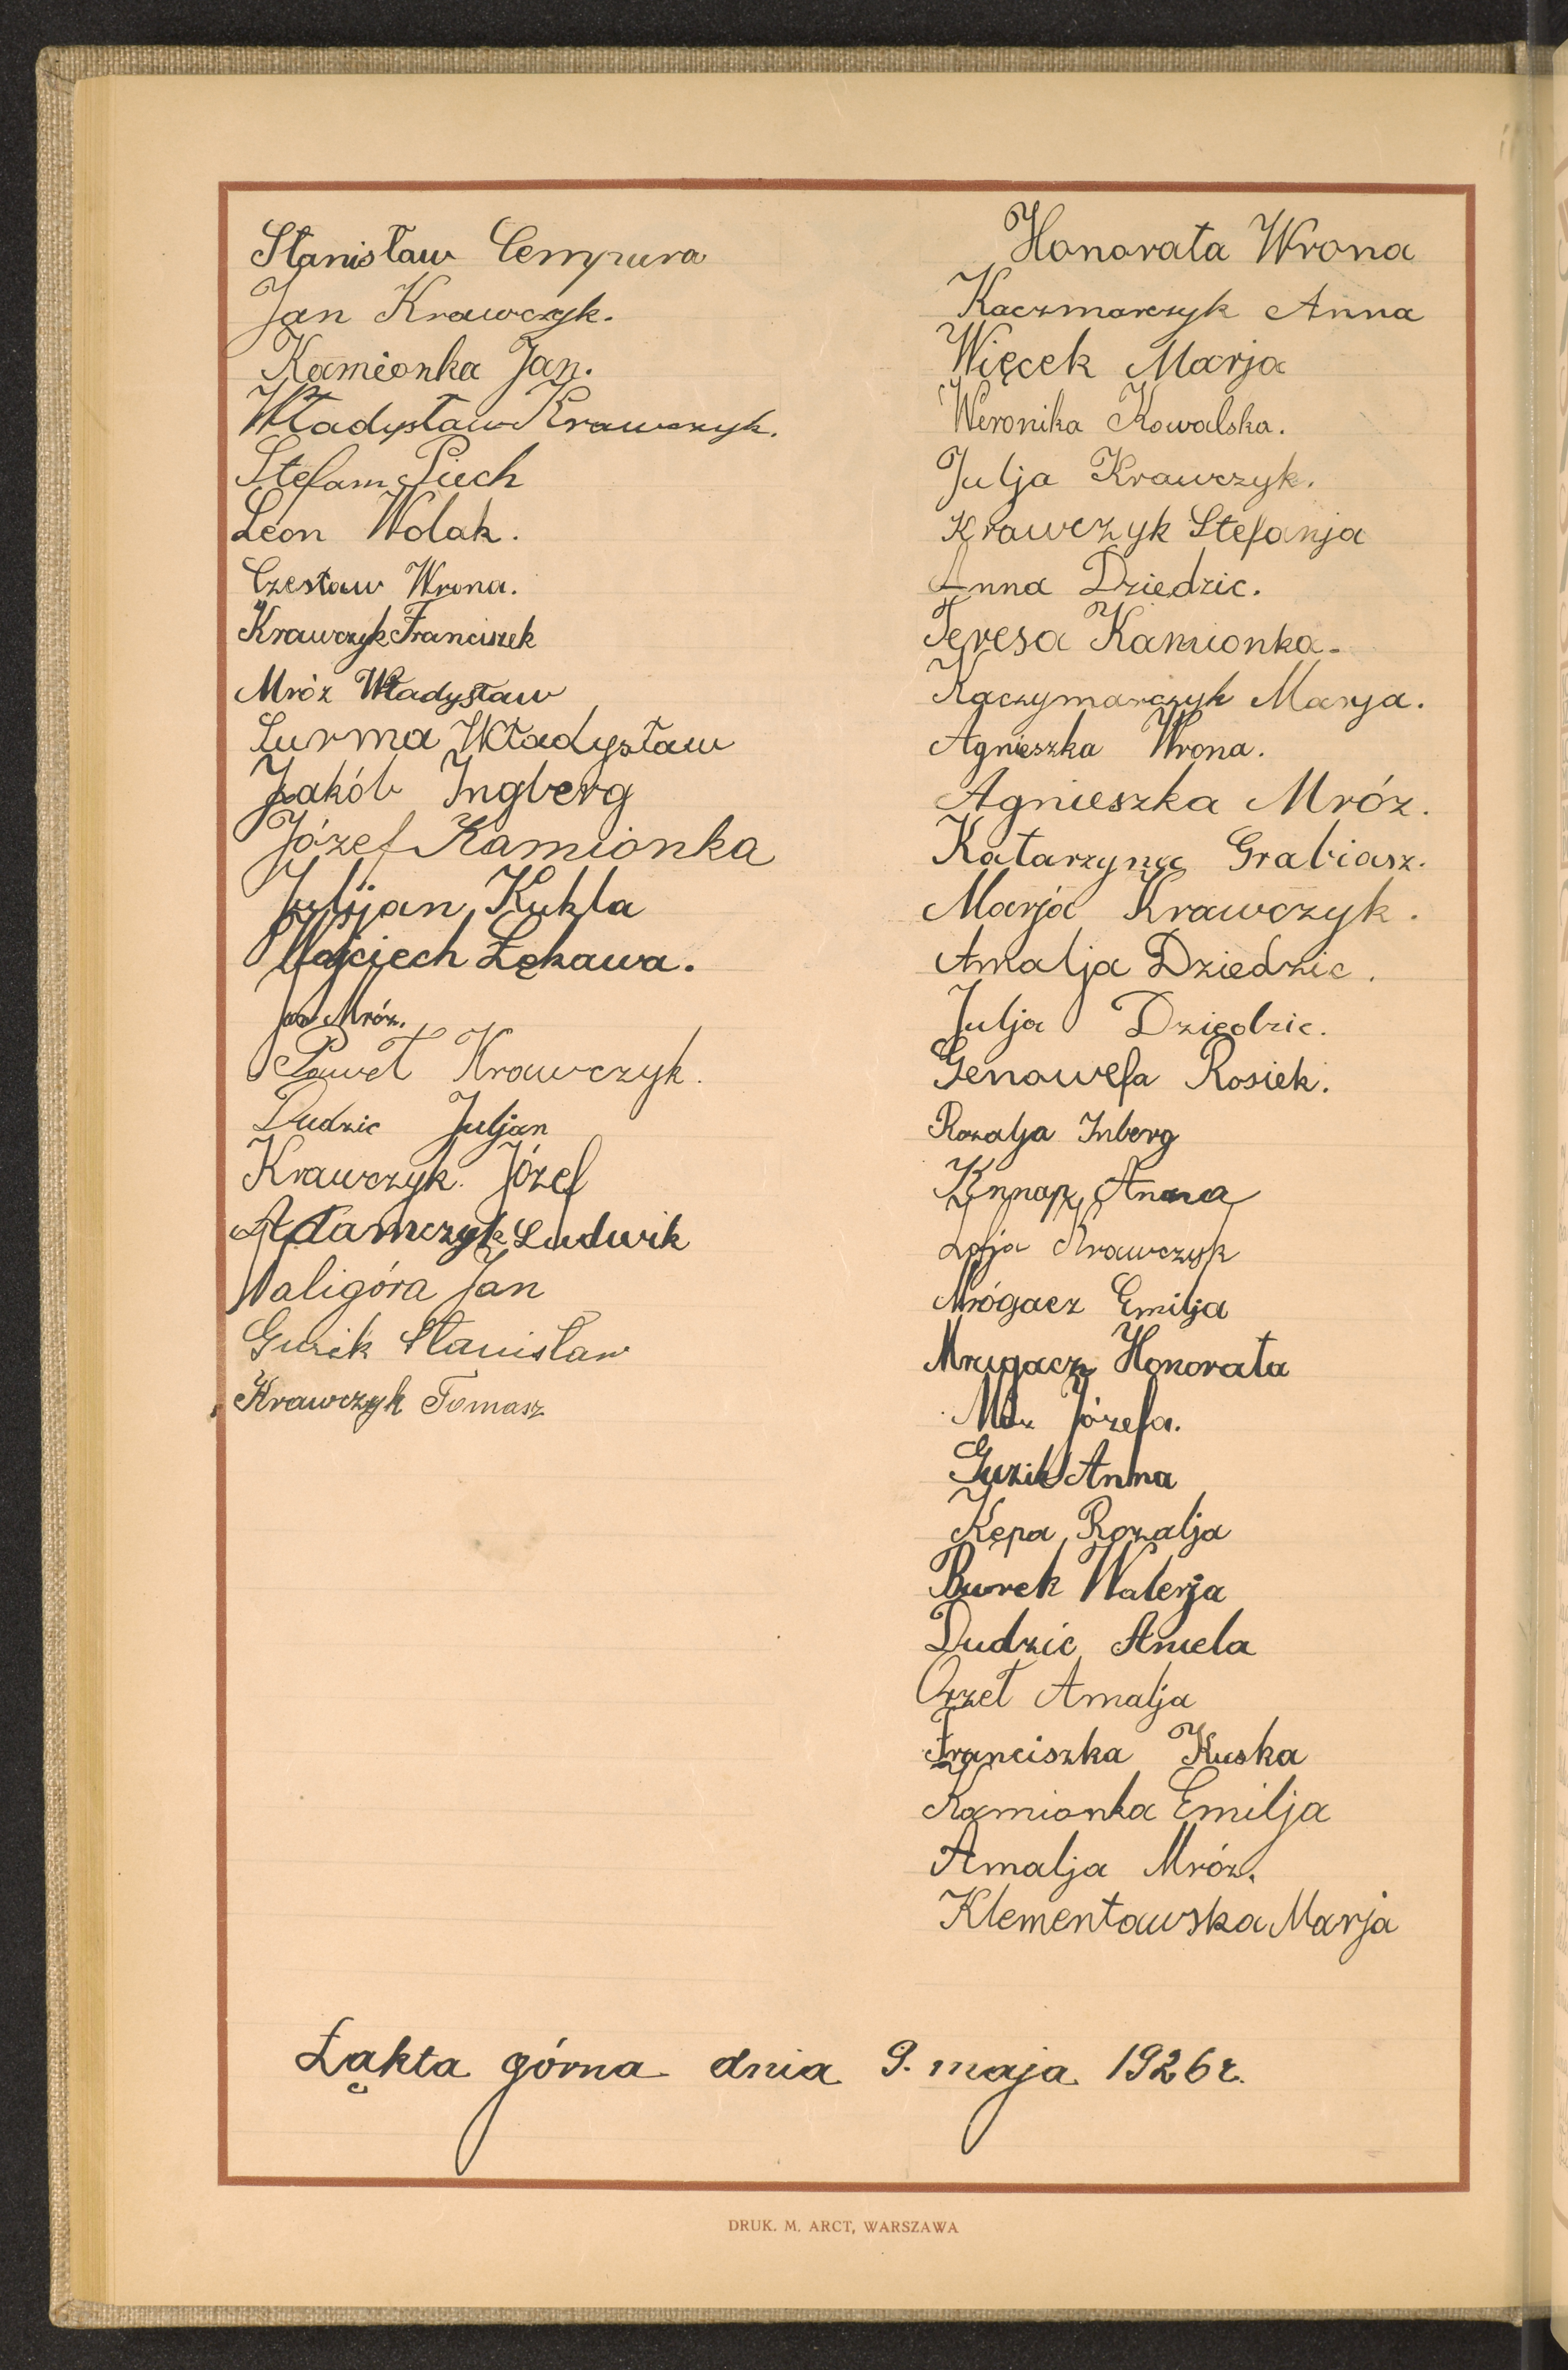 Stanisław Cempura
Jan Krawczyk.
Kamionka Jan.
Władysław Krawczyk.
Stefan Piech
Leon Wolak.
Czesław Wrona.
Krawczyk Franciszek
Mróz Władysław
Surma Władysław
Jakób Ingberg
Józef Kamionka
Julijan Kukla
Wojciech Łękawa.
Jan Mróz.
Paweł Krawczyk.
Dudzic Juljan
Krawczyk Józef
Adamczyk Ludwik
Naligóra Jan
Guzik Stanisław
Krawczyk Tomasz
Honorata Wrona
Kaczmarczyk Anna
Więcek Marja
Weronika Kowalska.
Julja Krawczyk.
Krawczyk Stefanja
Anna Dziedzic.
Teresa Kamionka.
Kaczymarczyk Marja.
Agnieszka Wrona.
Agnieszka Mróz.
Katarzyna Grabiasz.
Marja Krawczyk.
Amalja Dziedzic.
Julja Dziedzic.
Genowefa Rosiek.
Rozalja Inberg
Knnap Anna
Zofja Krawczyk
Mrógacz Emilja
Mrugacz Honorata
Józefa.
Guzik Anna
Kępa Rozalja
Burek Walerja
Dudzic Aniela
Orzeł Amalja
Franciszka Kuska
Kamionka Emilja
Amalja Mróz.
Klementowska Marja
Łąkta górna dnia 9. maja 1926 r.
DRUK. M. ARCT, WARSZAWA